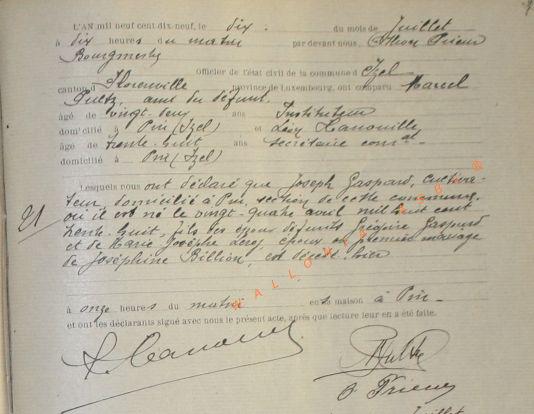 L'AN mil neuf cent dix-neuf, le dix du mois de Juillet
à dix heures du matin par devant nous, Prieur
Bourgmestre
Officier de l'état civil de la commune d'Izel
canton d Florenville province de Luxembourg, ont comparu Marcel
ami du défunt,
âgé de vingt deux ans Instituteur
domicilié à Pin (Izel) et Léon Hanouille
âgé de trente-huit ans secrétaire comal
domicilié à Pin (Izel)
Lesquels nous ont déclaré que Joseph Gaspard, cultiva-
teur, domicilié à Pin, section de cette commune,
21 où il est né le vingt-quatre avril mil huit cent
trente-huit, fils des époux défunts Grégoire Gaspard
et de Marie Josèphe Leroy, époux en premier mariage
de Joséphine Billion, est décédé hier
à onze heures du matin en sa maison à Pin
et ont les déclarants signé avec nous le présent acte, après que lecture leur en a été faite.
L Hanouille
Prieur
Juillet